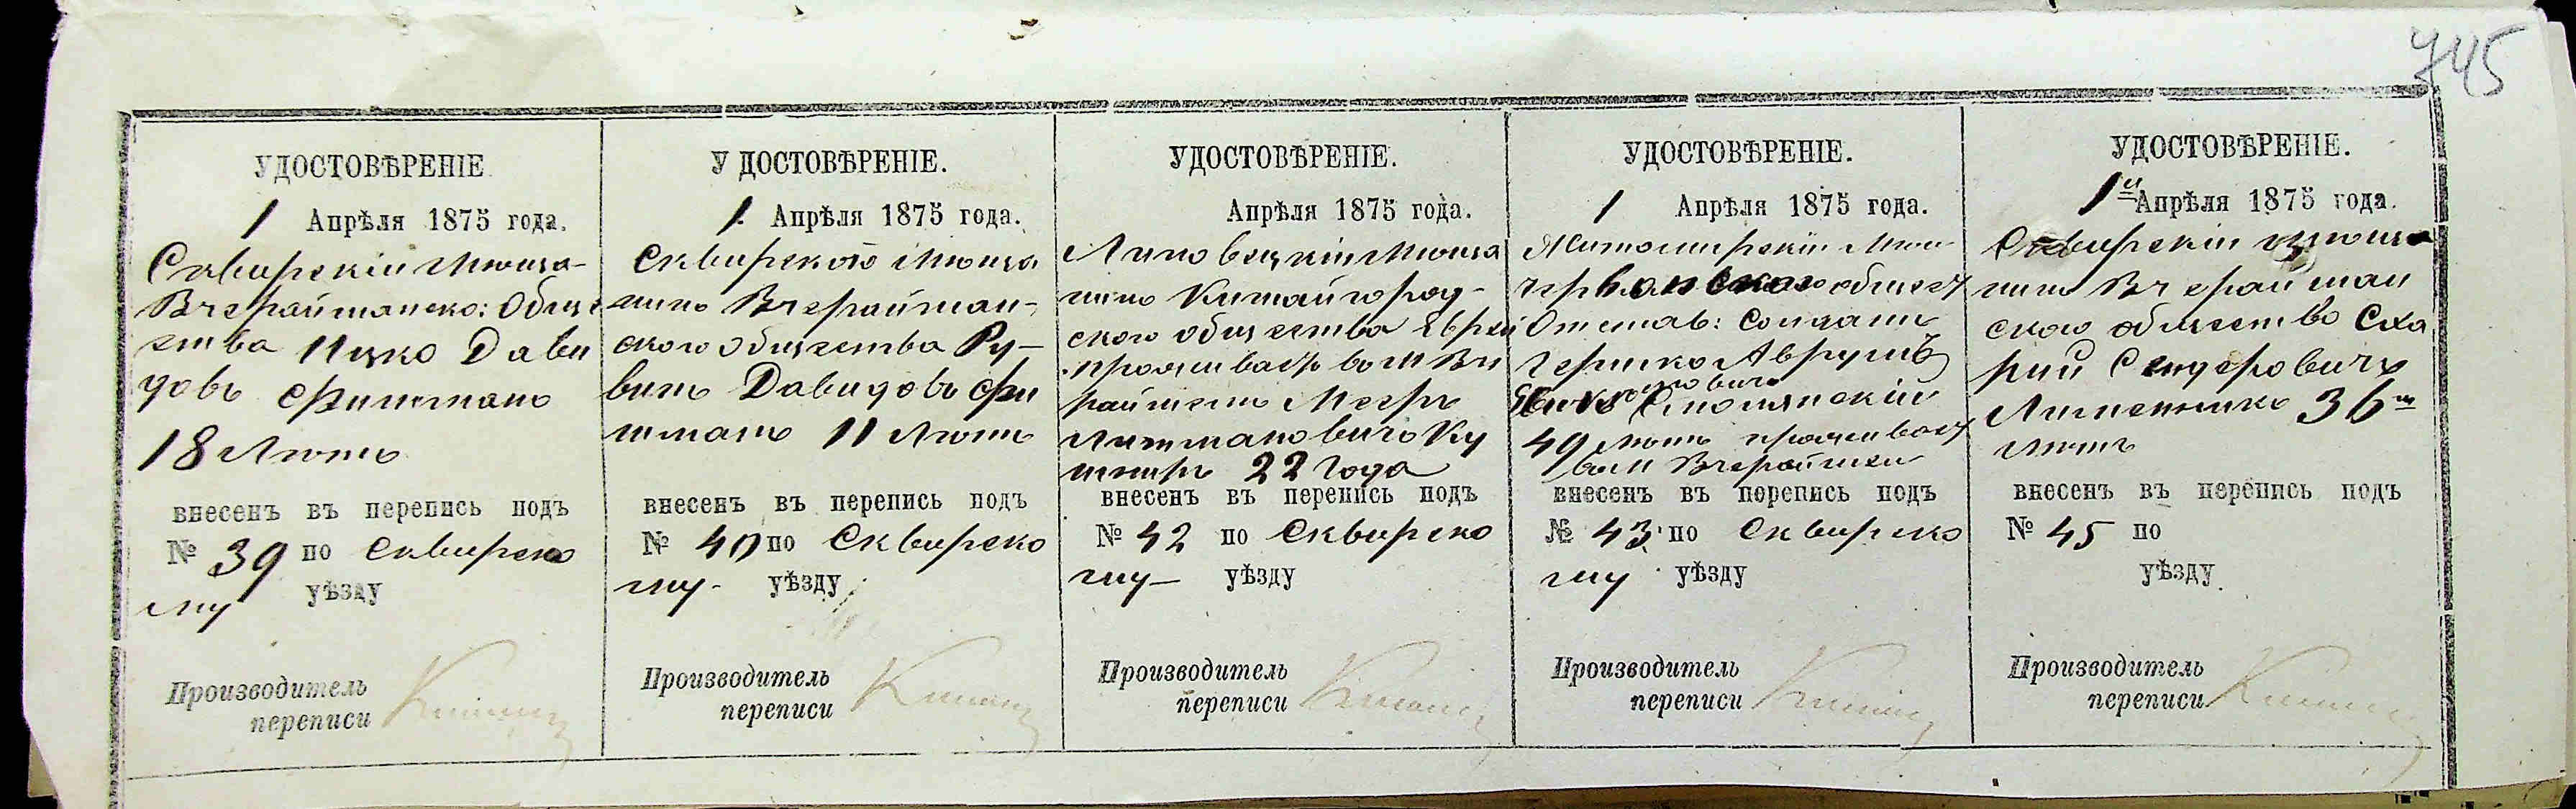 745
УДОСТОВѢРЕНІЕ
1 Апрѣля 1875 года.
Сквирскій Мѣща-
Вчерайшанско: Обще
ства Ицко Дави
довъ Фишманъ
18 Лѣтъ
внесенъ въ перепись подъ
№ 39 по Сквирско
му уѣзду
Производитель
переписи
У ДОСТОВѢРЕНІЕ.
1 Апрѣля 1875 года.
Сквирского Мѣща
нинъ Вчерайшан-
ского Общества Ру-
винъ Давидовъ Фи
шманъ 11 Лѣтъ
внесенъ въ перепись подъ
№ 40 по Сквирско
му- уѣзду
Производитель
переписи
УДОСТОВѢРЕНІЕ.
Апрѣля 1875 года.
Липовецкій Мѣща
нинъ Китайгород-
ского общества Еврей
прожива въ М Вче
райшеть Мееръ
Литмановичъ Ку
шниръ 22 Года
внесенъ въ перепись подъ
№ 42 по Сквирско
му- уѣзду
Производитель
переписи
УДОСТОВѢРЕНІЕ.
1 Апрѣля 1875 года.
Житомирскій Мѣщ
общест
Отстав: Солдатъ
Гершко Аврумъ
Смолянскій
49 лѣтъ
въ М Вчерайшеи
внесенъ въ перепись подъ
№ 43 по Сквирско
му уѣзду
Производитель
переписи
УДОСТОВѢРЕНІЕ.
1й Апрѣля 1875 года.
Сквирскій Мѣща
нинъ Вчерайшан
ского общество Сха
рий Сендеровичъ
36ти
лѣтъ
внесенъ въ перепись подъ
№ 45 по
уѣзду
Производитель
переписи